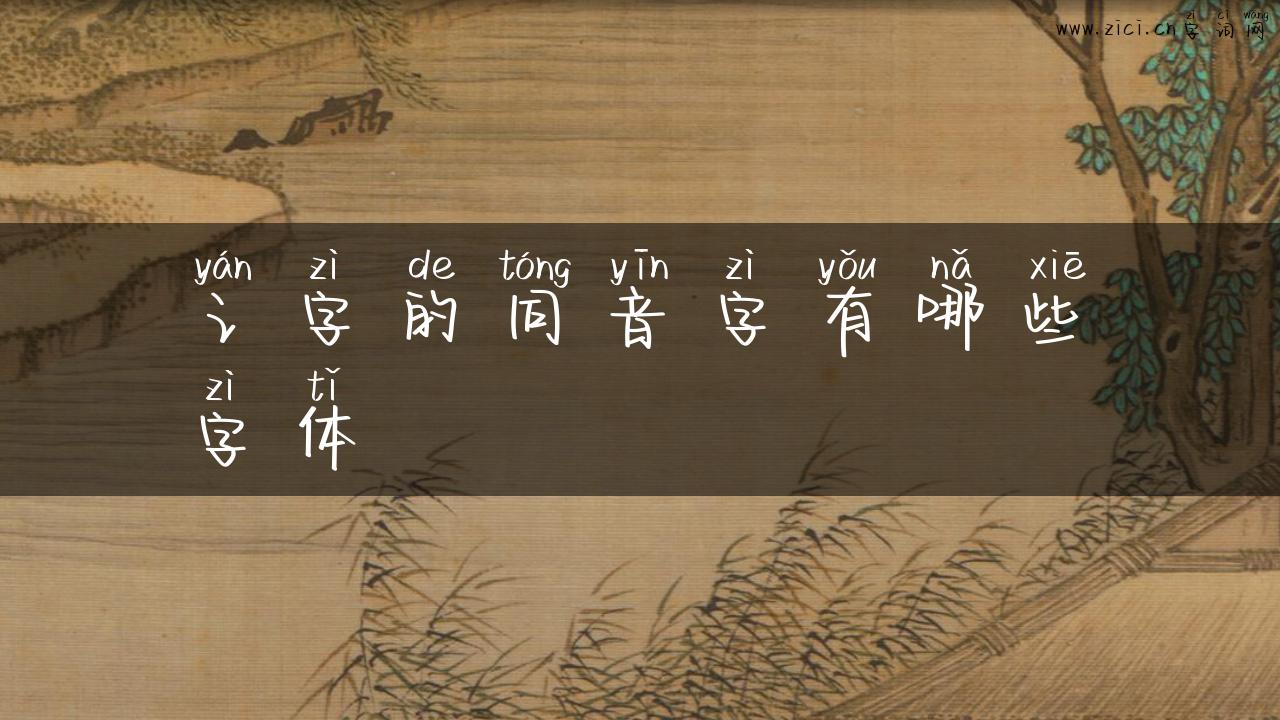 zì cí wǎng
www.zici.cn字词网
yán zì de tóng yīn zì yǒu nǎ xiē
讠字的同音字有哪些
zì tǐ
字体